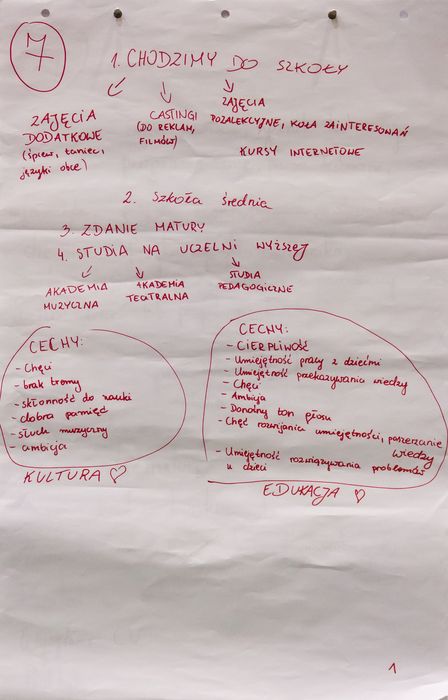 7
1. CHODZIMY DO SZKOŁY
ZAJĘCIA
DODATKOWE
(śpiew, taniec,
języki obce)
CASTINGI
(DO REKLAM,
FILMÓW)
ZAJĘCIA
POZALEKCYJNE, KOŁA ZAINTERESOWAŃ
KURSY INTERNETOWE
2. Szkoła średnia
3. ZDANIE MATURY
4. STUDIA NA UCZELNI WYŻSZEJ
AKADEMIA
MUZYCZNA
AKADEMIA
TEATRALNA
STUDIA
PEDAGOGICZNE
CECHY:
- Chęci
- brak tremy
- skłonność do nauki
- dobra pamięć
- słuch muzyczny
- ambicja
KULTURA ♡
CECHY:
- CIERPLIWOŚĆ
- Umiejętność pracy z dziećmi
- Umiejętność przekazywania wiedzy
- Chęci
- Ambicja
- Donośny ton głosu
- Chęć rozwijania umiejętności, poszerzanie
wiedzy
- Umiejętność rozwiązywania problemów
u dzieci
EDUKACJA ♡
1